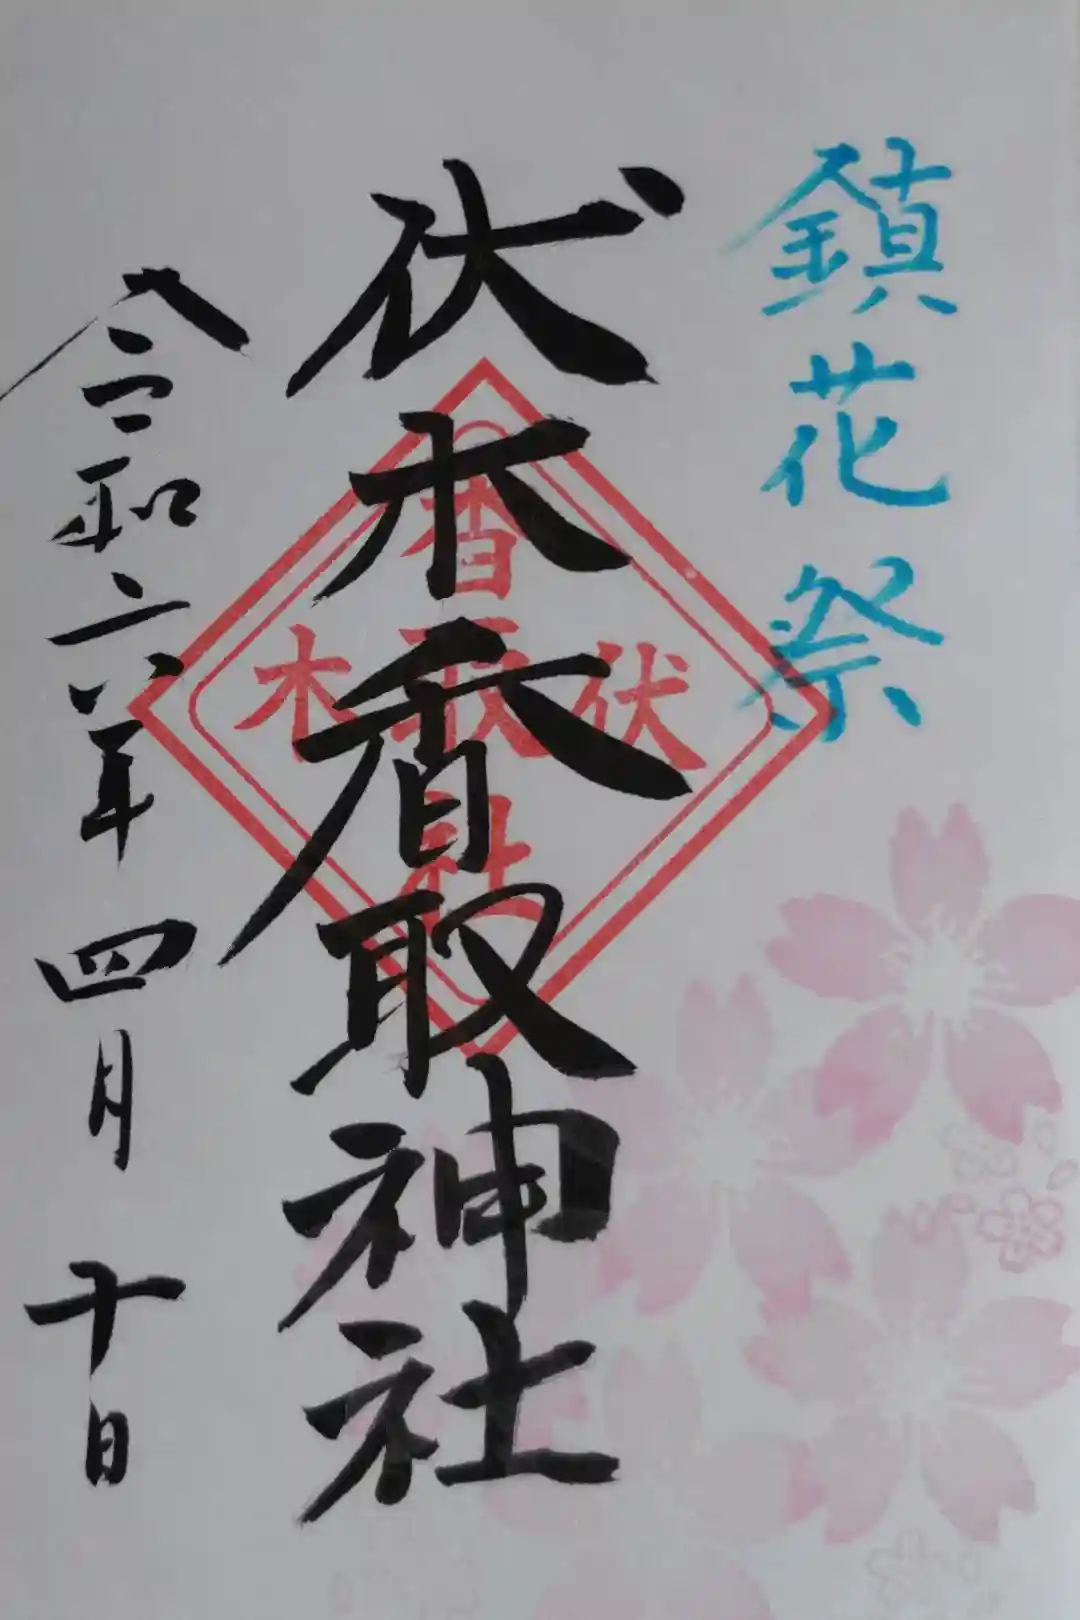 鎮花祭
伏木香取神社
伏木
香取社
令和六年四月十日